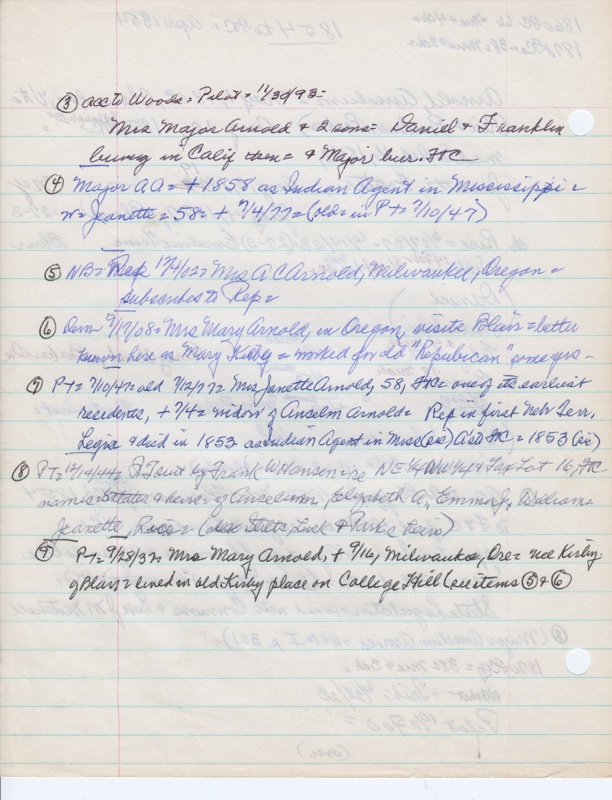 ③ acc to Woods = Pilot = 11/30/93 =
Mrs Major Arnold & 2 sons = Daniel & Franklin
living in Calif then = & Major bur. FtC
④ Major AA = + 1858 as Indian Agent in Mississippi =
w = Jeanette = 58 = + 7/4/77 = (old = in PT = 7/10/47)
⑤ NB = Rep 12/4/02 = Mrs A C Arnold, Milwaukee, Oregon =
subscribes to Rep =
⑥ Dem 9/17/08 = Mrs Mary Arnold, in Oregon, visits Blair = better
known here as Mary Kirby = worked for old "Republican" some yrs -
⑦ PT = 7/10/47 = old 7/12/77 = Mrs Janette Arnold, 58, FtC = one of its earliest
residents, + 7/4 = widow of Anselm Arnold = Rep in first Neb Terr.
Legis & died in 1853 as Indian Agent in Miss (sic) Ft C = 1853 (sic)
⑧ PT = by Frank W Hansen = re NE 1/4 NW 1/4 & Tax Lot 16, FtC
names = & heirs = of Anselum, Elizabeth A, Emma J, William =
Jeanette, (
⑨ PT = 9/28/33 = Mrs Mary Arnold, + 9/16, Milwaukee, Ore = nee Kirby
of Blair = lived in old Kirby place on College Hill (see items ⑤ & ⑥